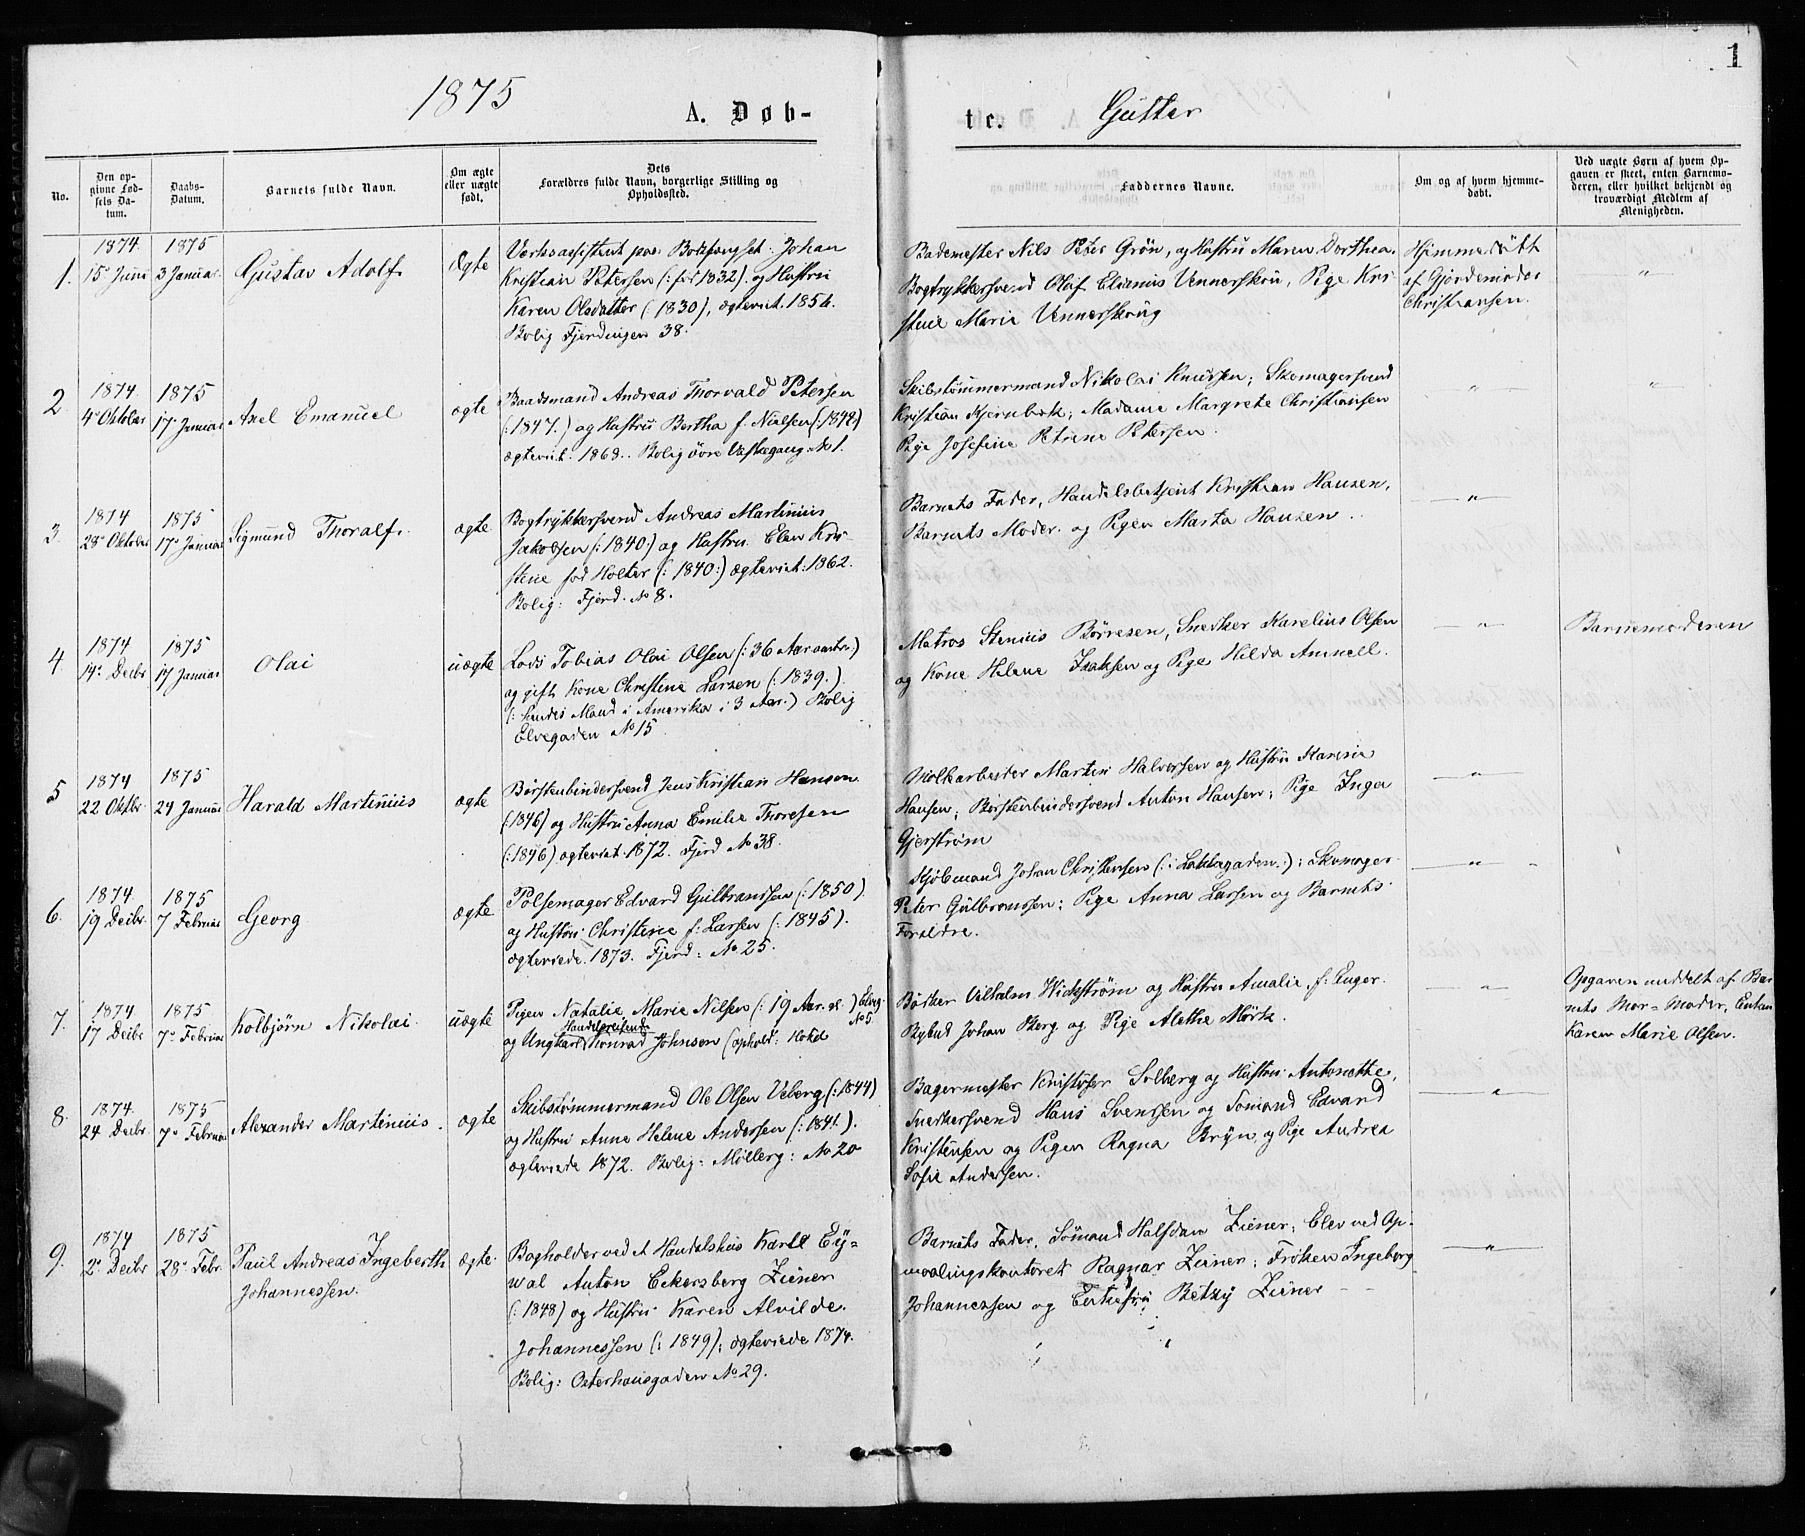 1
1875
A. Døb-
te.
Gutter
No.
Den op-
givne Fød-
sels Da-
tum.
Daabs-
Datum.
Barnets fulde Navn.
Om ægte
eller uægte
født.
Dets
Forældres fulde Navn, borgerlige Stilling og
Opholdssted.
Faddernes Navne.
Om og af hvem hjemme-
døbt.
Ved uægte Børn af hvem Op-
gaven er skeet, enten Barnemo-
deren, eller hvilket bekjendt og
troværdigt Medlem af
Menigheden.
1.
1874
15de Juni
1875
3 Januar
Gustav Adolf.
Ægte
Værksassistent paa Bodsfengslet Johan
Kristian Petersen (: fød 1832) og Hustru
Karen Olsdatter (: 1830), ægteviet. 1854.
Bolig Fjerdingen 38.
Bademester Nils Peter Grøn, og Hustru Maren Dorthea.
Bogtrykkersvend Olaf Elianus Vennerskou, Pige Kri-
stine Marie Vennerskoug
Hjemmedøbt
af Gjordemoder
Christiansen.
"
2
1874
4de Oktober
1875
17de Januar
Axel Emanuel
ægte
Baadsmand Andreas Thorvald Petersen
(: 1847.) og Hustru Bertha f. Nielsen (: 1842)
ægteviet. 1868. Bolig øvre Vaskegang. No 1.
Skibstømmermand Nikolai Knudsen; Skomagersvend
Kristian Bjørnbek; Madame Margrete Christiansen
Pige Josefine Petrine Petersen.
"
"
3.
1874
28de Oktober
1875
17de Januar
Sigmund Thoralf.
ægte
Bogtrykkersvend Andreas Martinius
Jakobsen (: 1840:) og Hustru Elen Kri-
stine fød Holter (: 1840:) ægteviet: 1862.
Bolig: Fjerd. No 8.
Barnets Fader, Handelsbetjent Kristian Hansen,
Barnets Moder. og Pigen Marta Hansen.
"
4
1874
14de Decbr
1875
17 Januar
Olai
uægte
Lods Tobias Olai Olsen (: 36 Aar
og gift Kone Christine Larsen (: 1839.)
(: hendes Mand i Amerika i 3 Aar.) Bolig
Elvegaden No 15
Matros Stenius Børresen, Snedker Karelius Olsen
og Kone Helene Isaksen og Pige Hilda Amnell.
"
Barnemoderen
5
1874
22 Oktbr.
1875
24 Januar
Harald Martinius
ægte
Børstenbindersvend Jens Kristian Hansen
(: 1846) og Hustru Anna Emilie Thoresen
(: 1846) ægteviet. 1872. Fjerd No 38.
Martin Halvorsen og Hustru Hansine
Hansen; Børstenbindersvend Anton Hansen; Pige Inga
Gjerstrøm
"
6.
1874
19 Decbr.
1875
7 Februar
Georg
ægte
Pølsemager Edvard Gulbranssen (: 1850)
og Hustru Christine f. Larsen (: 1845).
ægteviede. 1873. Fjerd: No 25.
Kjøbmand Johan Christensen (: i Lakkegaden.); Skomager
Peter Gulbranssen; Pige Anna Larsen og Barnets
Forældre.
"
7.
1874
17 Decbr
1875
7de Februar
Kolbjørn Nikolai
uægte
Pigen Natalie Marie Nilsen (: 19 Aar gl.) Elveg.
No 5
Handelsreisende
og Ungkarl Konrad Johnsen (ophold: Hotel
Bødker Vilhelm Wickstrøm og Hustru Amalie f: Unger.
Bybud Johan Berg og Pige Alethe Mørk.
"
Opgaven meddelt af Bar-
nets Mor-Moder, Enken
Karen Marie Olsen.
8.
1874.
24 Decbr.
1875
7de Februar
Alexander Martinius.
ægte
Skibstømmermand Ole Olsen Veberg (: 1844)
og Hustru Anne Helene Andersen (: 1841.).
ægteviede 1872. Bolig: Møllerg: No 20
Bagermester Kristofer Solberg og Hustru Antonette,
Snedkersvend Hans Svensen og Sømand Edvard
Kristensen og Pigen Ragna Bryn, og Pige Andrea
Sofie Andersen.
"
9.
1874
2de Decbr
1875
28de Febr.
Paul Andreas Ingeberth
Johannessen.
ægte.
Bogholder ved et Handelshus Karl Ey-
wal Anton Eckersberg Ziener
(: 1848) og Hustru Karen Alvilde
Johannessen (: 1849); ægteviede 1874.
Bolig: Osterhausgaden No 29.
Barnets Fader, Sømand Halfdan Ziener; Elev ved Op-
maalingskontoret Ragnar Ziener; Frøken Ingeborg
Johannessen og Enkefru Betzy Ziener
"